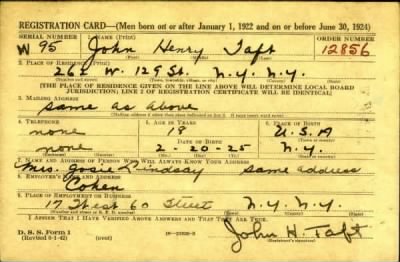 REGISTRATION CARD—(Men born on or after January 1, 1922 and on or before June 30, 1924)
SERIAL NUMBER 1. NAME (Print) ORDER NUMBER
W 95 John Henry Taft 12856
2. PLACE OF RESIDENCE (Print)
262 W. 129 St. N.Y. N.Y.
[THE PLACE OF RESIDENCE GIVEN ON THE LINE ABOVE WILL DETERMINE LOCAL BOARD
JURISDICTION; LINE 2 OF REGISTRATION CERTIFICATE WILL BE IDENTICAL]
3. MAILING ADDRESS
same as above
4. TELEPHONE 5. AGE IN YEARS 6. PLACE OF BIRTH
none 18 U.S.A
DATE OF BIRTH
none 2-20-25 N.Y.
7. NAME AND ADDRESS OF PERSON WHO WILL ALWAYS KNOW YOUR ADDRESS
Mrs. Josie Lindsay same address
8. EMPLOYER'S NAME AND ADDRESS
Cohen
9. PLACE OF EMPLOYMENT OR BUSINESS
17 West 60 Street N.Y. N.Y.
I AFFIRM THAT I HAVE VERIFIED ABOVE ANSWERS AND THAT THEY ARE TRUE.
D. S. S. Form 1
(Revised 6-1-42) John H. Taft
(Registrant's signature)